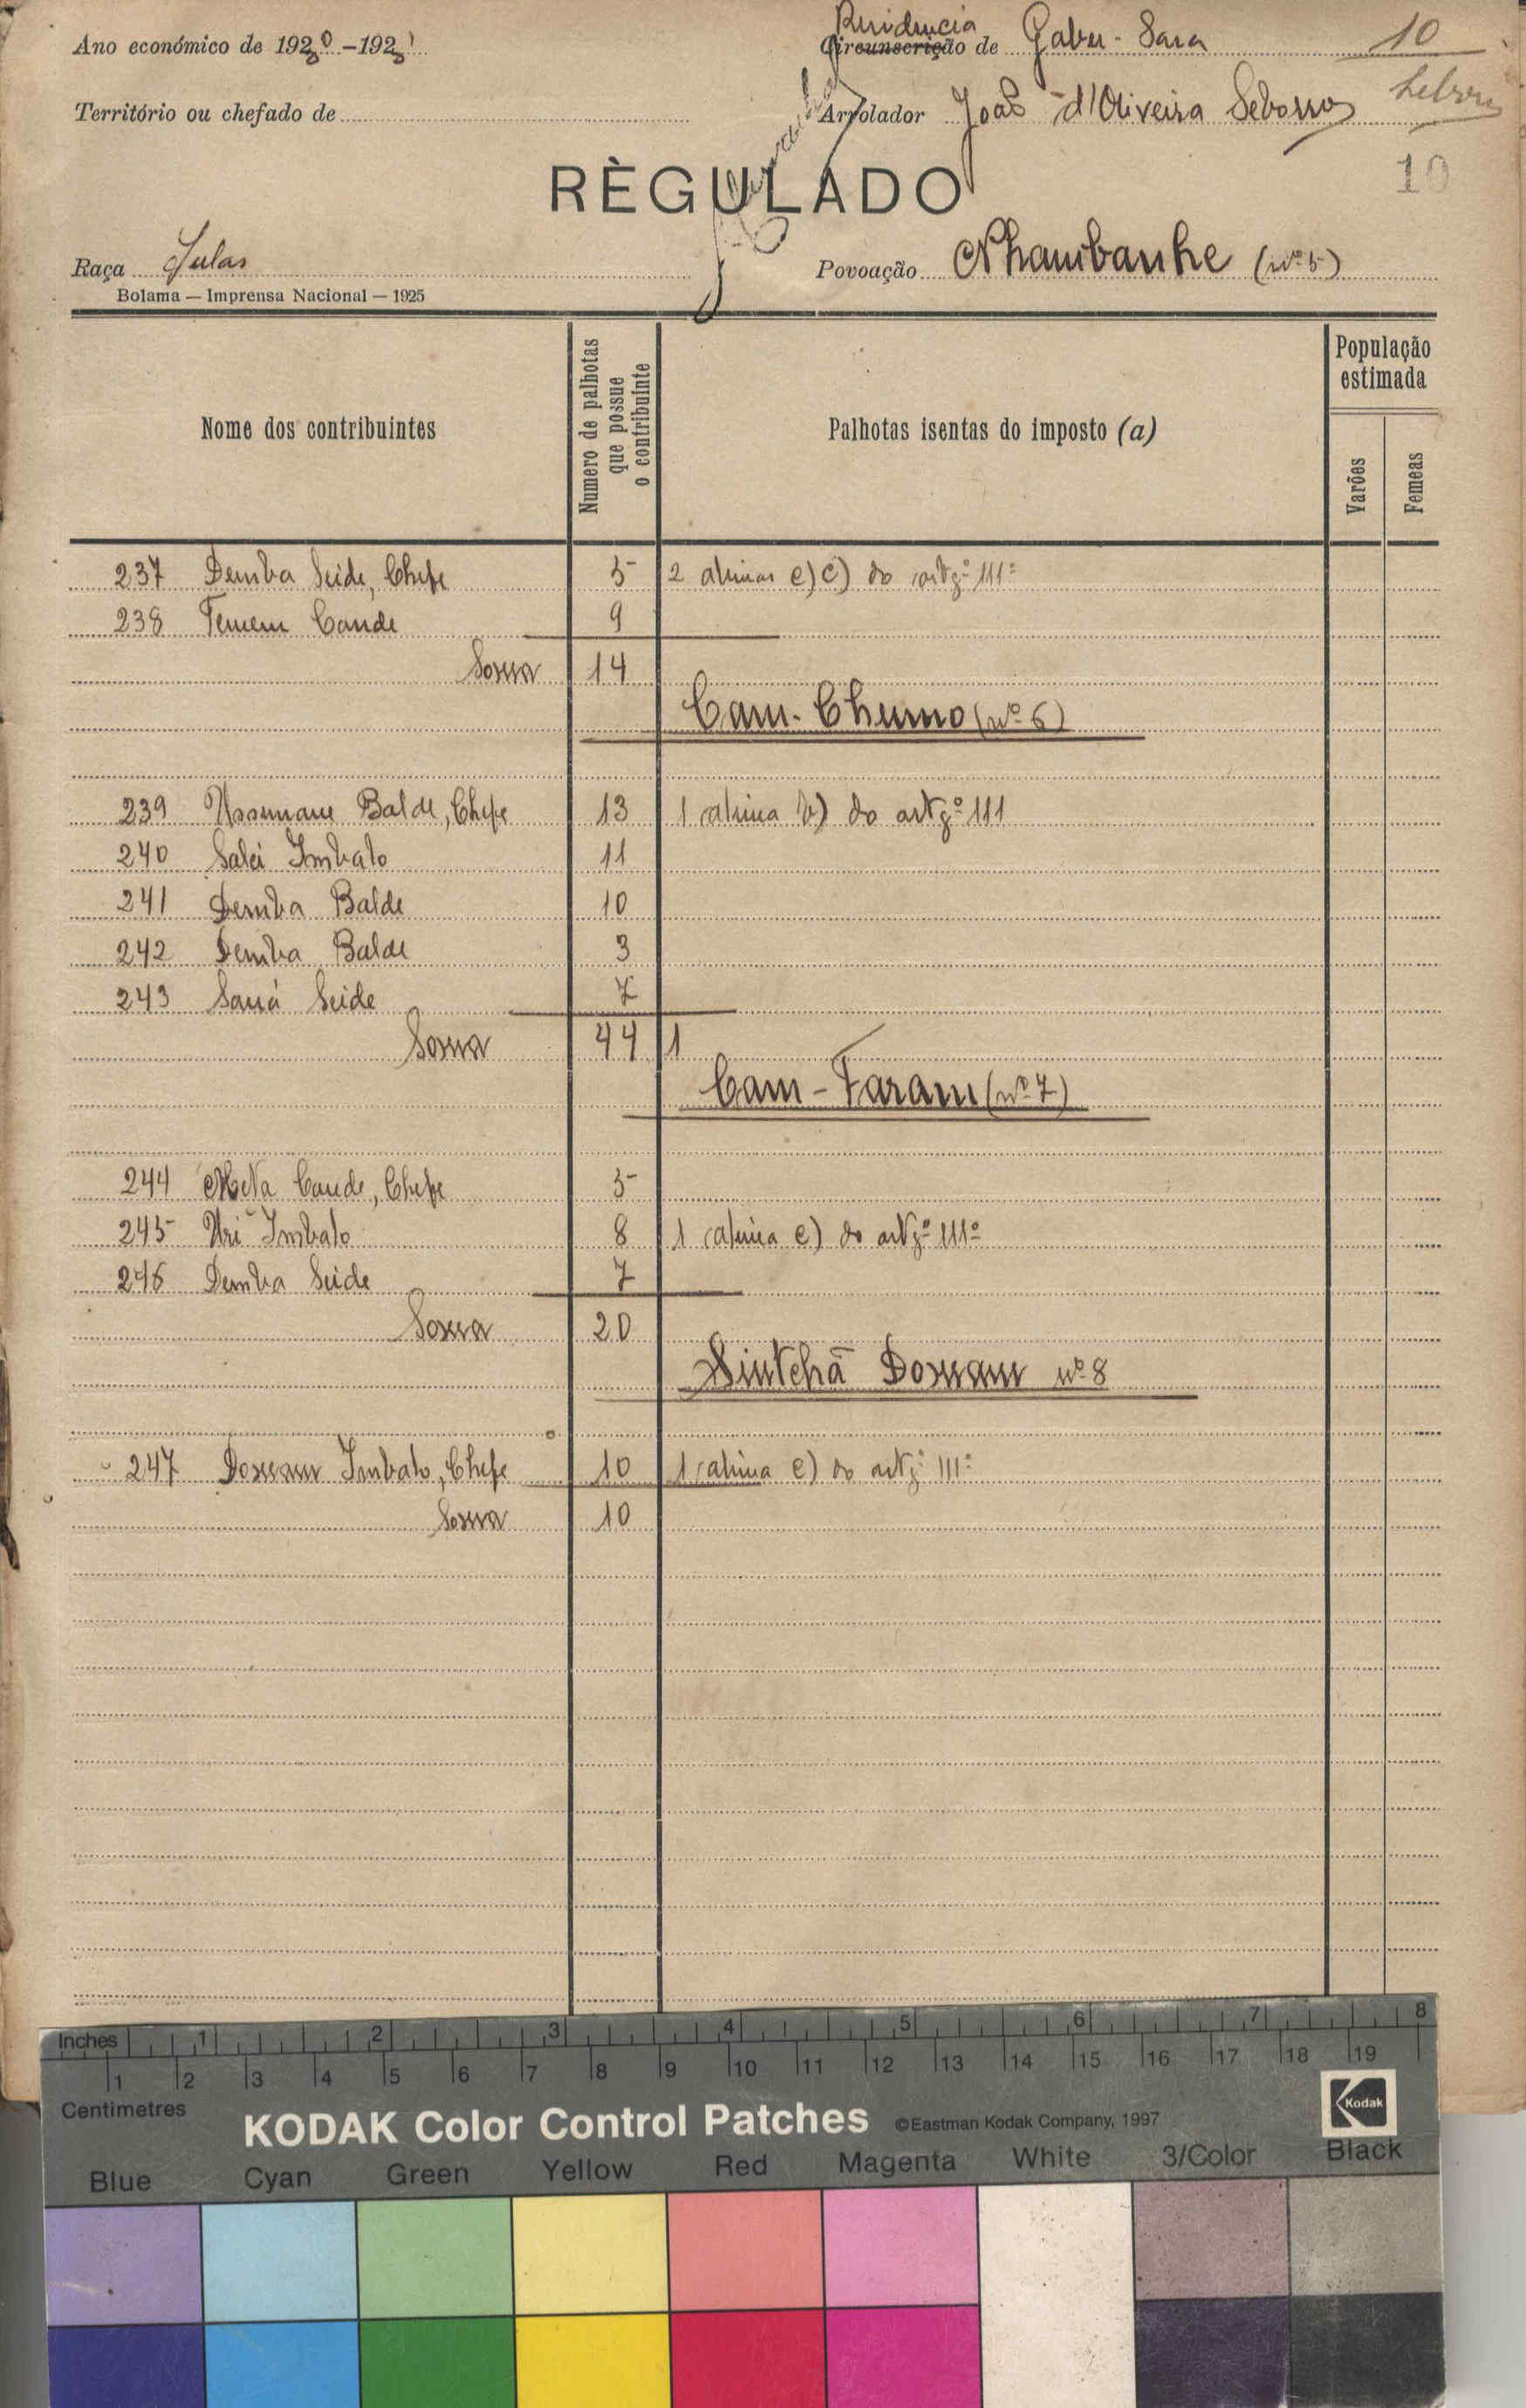 Residencia
Ano económico de 1930-1931 Circunscrição de Gabu-Sara 10
Território ou chefado de Arrolador João d'Oliveira
RÈGULADO 10
Raça Fulas Povoação Nhambanhe (nº 5)
Bolama — Imprensa Nacional — 1925
Nome dos contribuintes
Numero de palhotas que possue o contribuinte
Palhotas isentas do imposto (a)
População estimada
Varões
Femeas
237 Demba Seide, Chefe 5 2 alineas e) c) do artgº 111º
238 Temem Cande 9
Soma 14
Cam-Chumo (nº 6)
239 Ussumane Balde, Chefe 13 1 alinea b) do artgº 111
240 Salei Imbalo 11
241 Demba Balde 10
242 Demba Balde 3
243 Saná Seide 7
Soma 44 1
Cam-Faram (nº 7)
244 Cande, Chefe 5
245 Uri Imbalo 8 1 alinea e) do artgº 111º
246 Demba Seide 7
Soma 20
Sintchã Doman nº 8
247 Doman Imbalo, Chefe 10 1 alinea e) do artgº 111º
Soma 10
Inches 1 2 3 4 5 6 7 8
1 2 3 4 5 6 7 8 9 10 11 12 13 14 15 16 17 18 19
Centimetres
KODAK Color Control Patches ©Eastman Kodak Company, 1997 Kodak
Blue Cyan Green Yellow Red Magenta White 3/Color Black